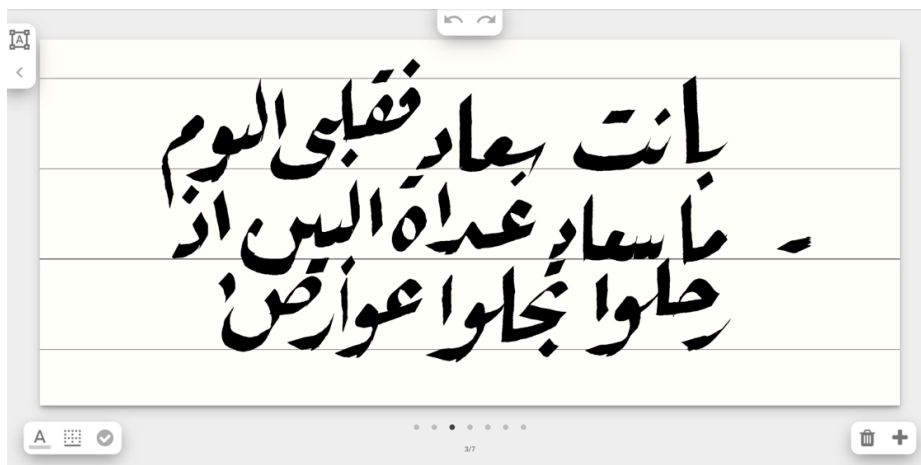 بانت سعاد فقلبي اليوم
ما سعاد غداة البين اذ
رحلوا تجلوا عوارض
A
3/7